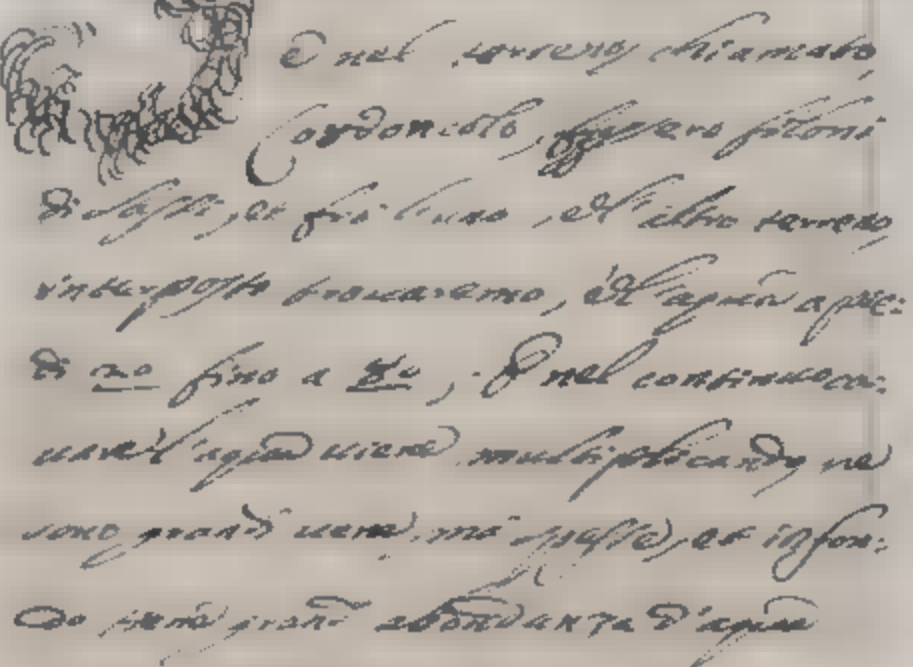 E nel terreno chiamato
Cordoncolo, fussero filoni
di sassi, et frà l'uno, et l'altro terreno
interposto trovaremo, et l'acqua a pie:
di fino a , E nel continuo ca:
uare l'acqua uiene multiplicando ne
sono grandi uene, mà spesse, et in fon:
do uiene grand' abondanza d'acqua